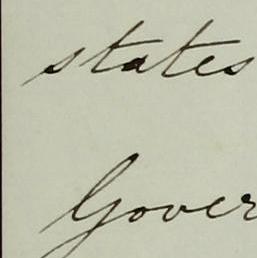 states
Gover